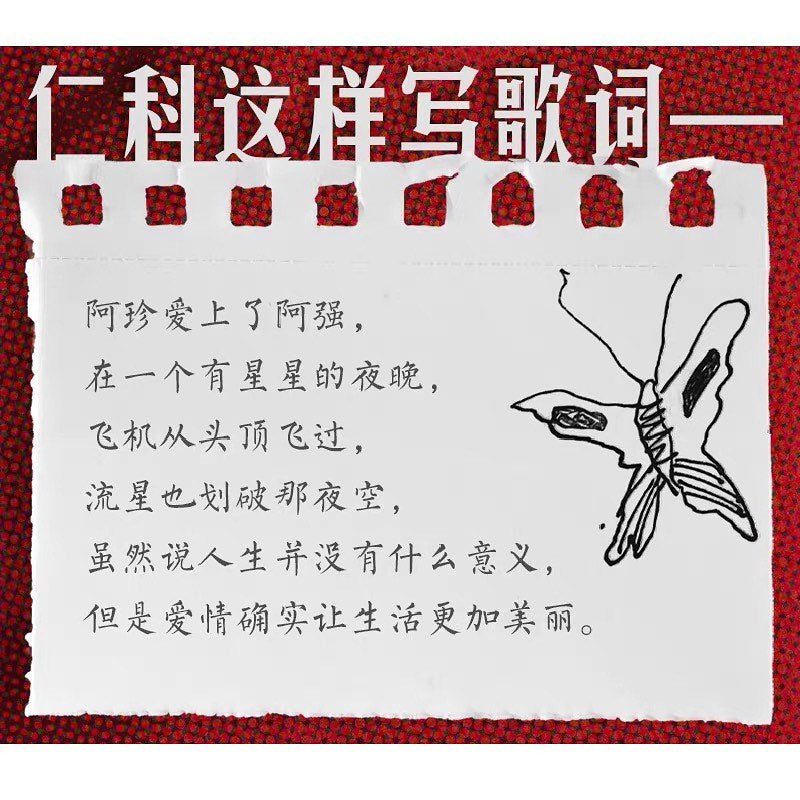 仁科这样写歌词——
阿珍爱上了阿强，
在一个有星星的夜晚，
飞机从头顶飞过，
流星也划破那夜空，
虽然说人生并没有什么意义，
但是爱情确实让生活更加美丽。